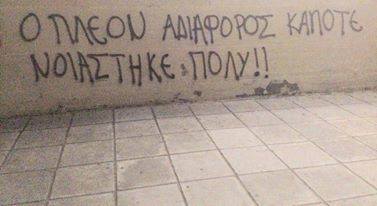 Ο ΠΛΕΟΝ ΑΔΙΑΦΟΡΟΣ ΚΑΠΟΤΕ
ΝΟΙΑΣΤΗΚΕ ΠΟΛΥ!!